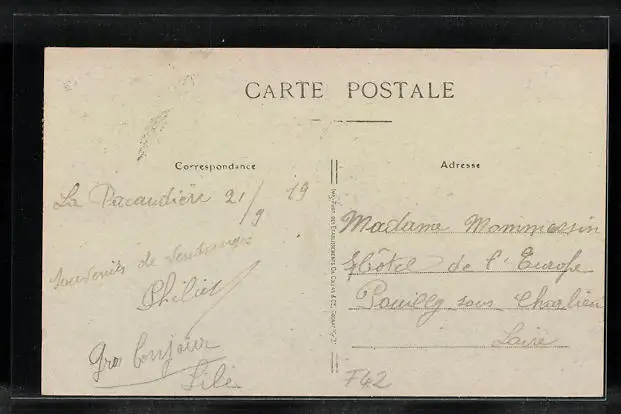 CARTE POSTALE
Correspondance
La Pacaudière 21/9 19
souvenirs de vendanges
Philict
Gros bonjour
Lili
Adresse
Madame Mommessin
Hôtel de l'Europe
Pouilly sous Charlieu
Loire
F42